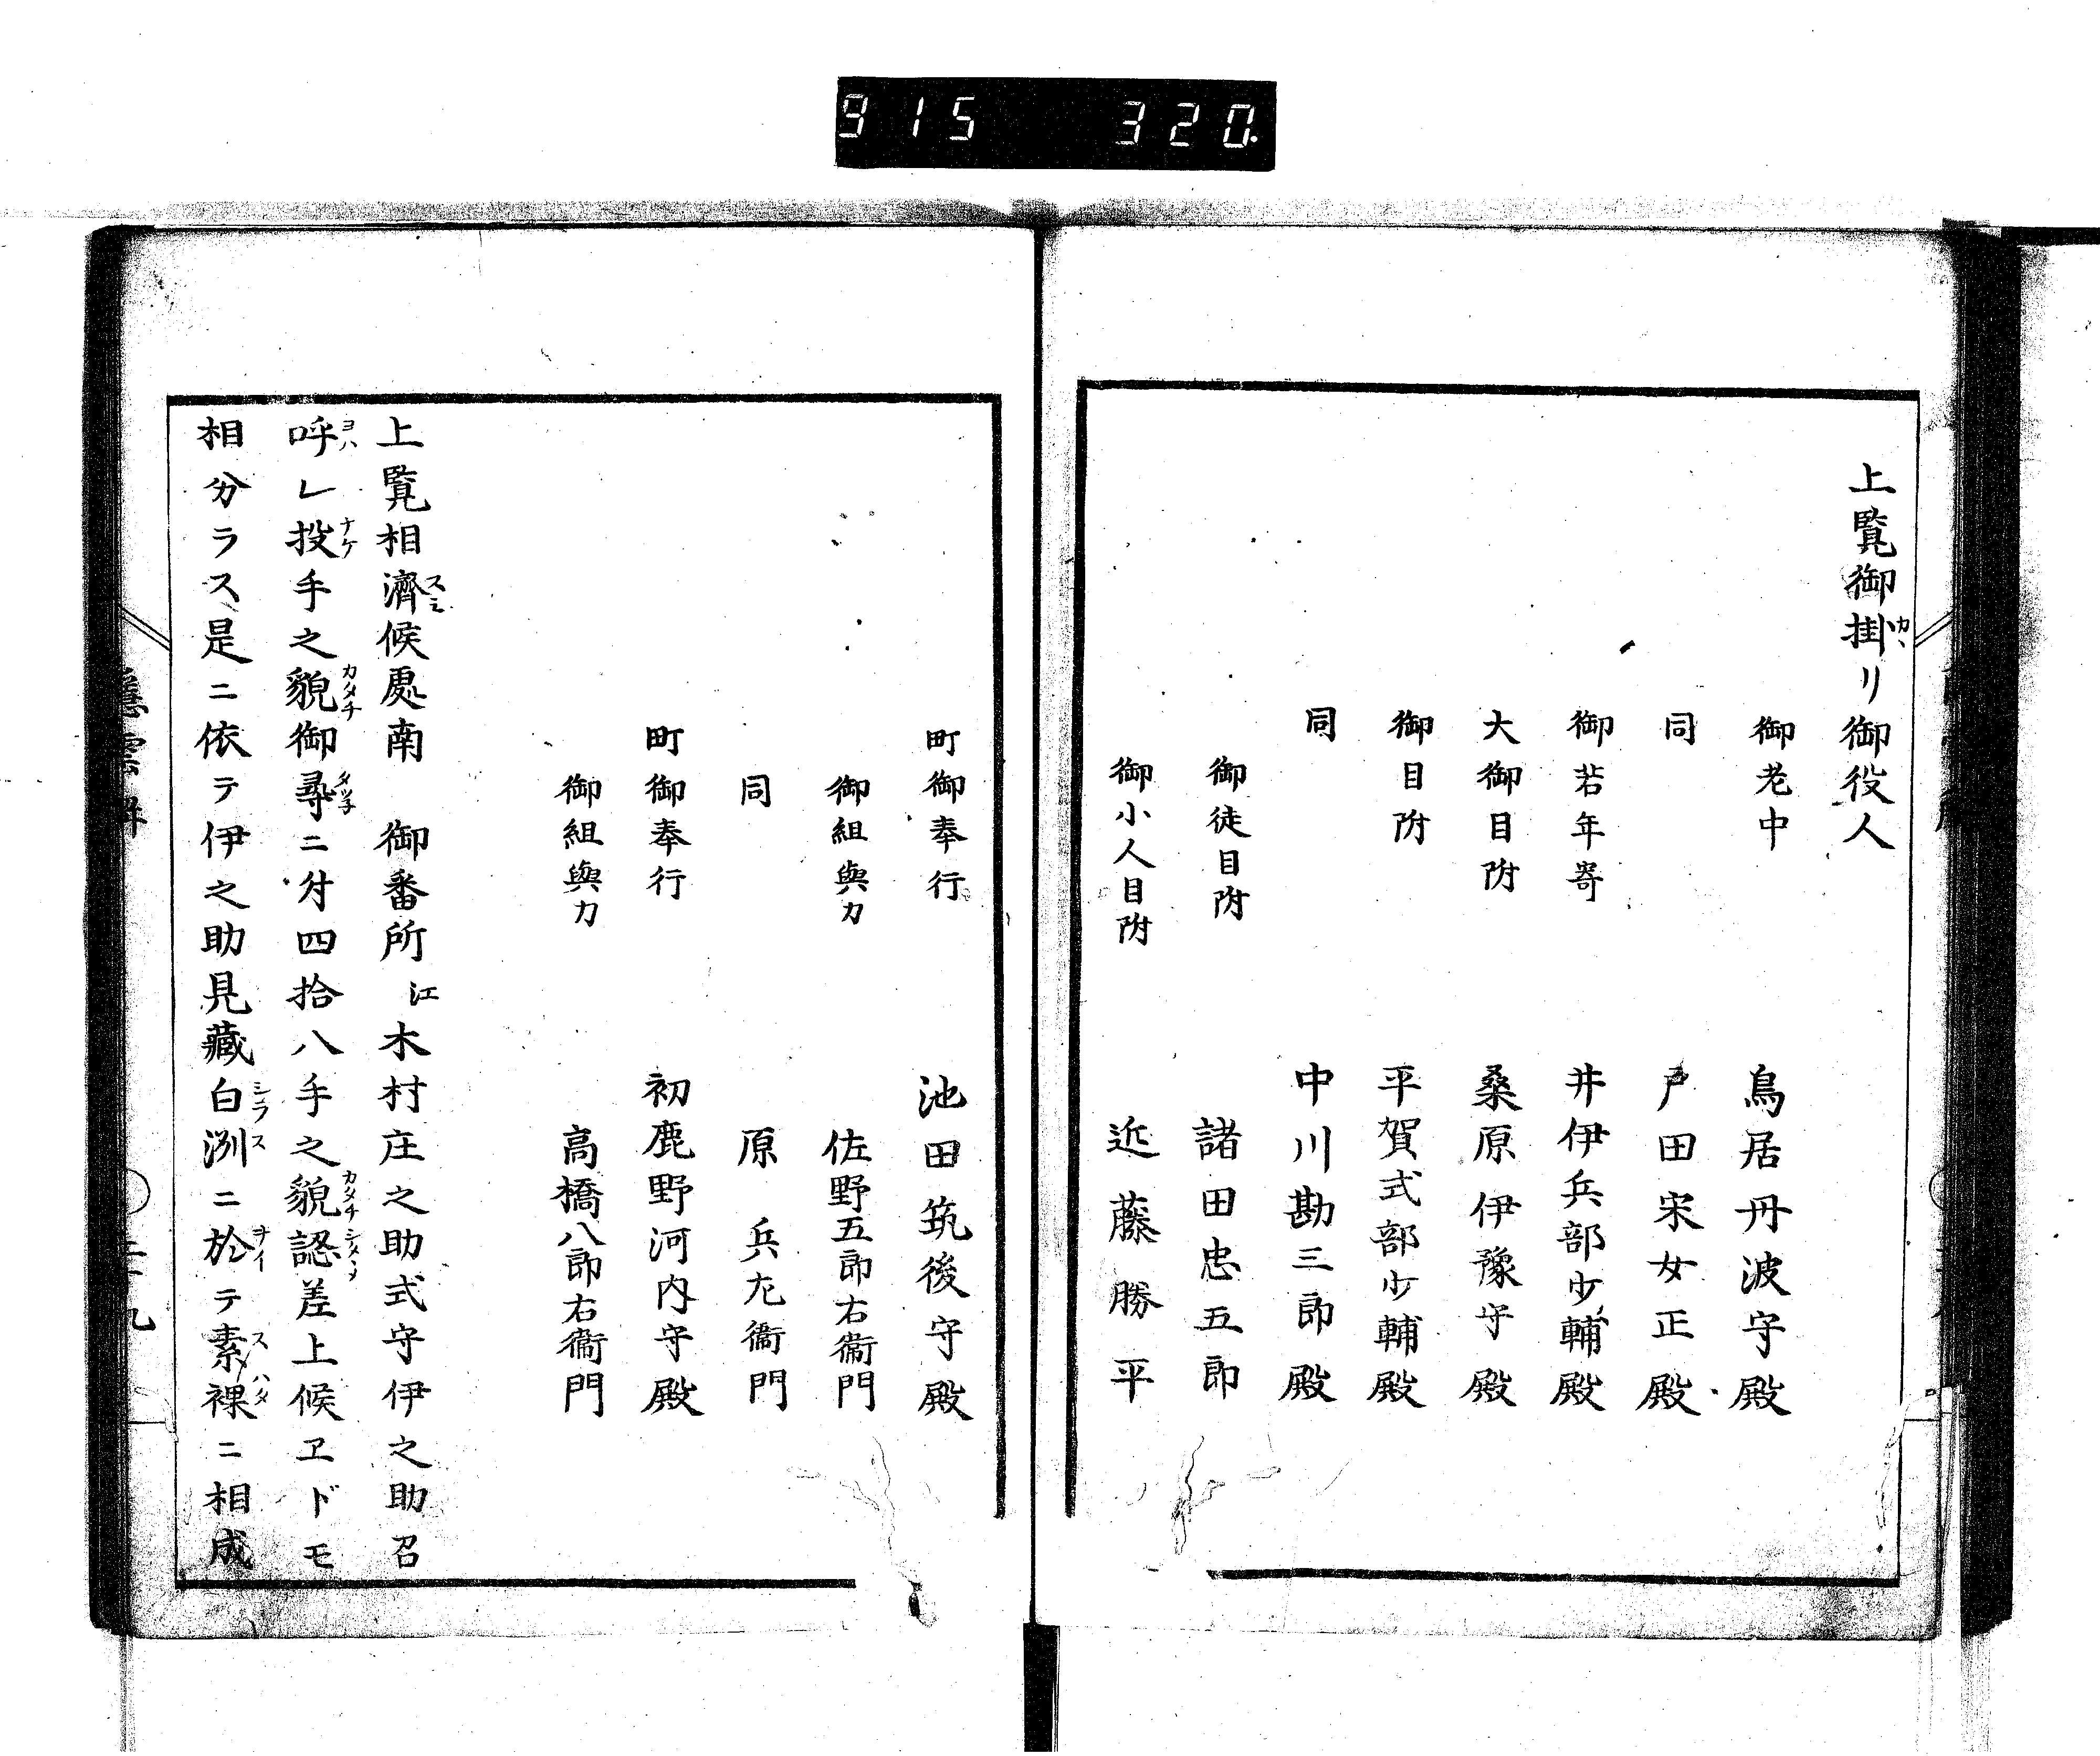 915 320.
上覧御掛リ御役人
御老中 鳥居丹波守殿
同 戸田宋女正殿
御若年寄 井伊兵部少輔殿
大御目附 桑原伊豫守殿
御目附 平賀式部少輔殿
同 中川勘三郎殿
御徒目附 諸田忠五郎
御小人目附 近藤勝平
町御奉行 池田筑後守殿
御組與力 佐野五郎右衞門
同 原兵九衞門
町御奉行 初鹿野河内守殿
御組與力 高橋八郎右衞門
上覧相濟候處南 御番所江木村庄之助式守伊之助召
呼レ投手之貌御尋ニ付四拾八手之貌認差上候ヱドモ
相分ラス是ニ依テ伊之助見藏白洌ニ於テ素裸ニ相成